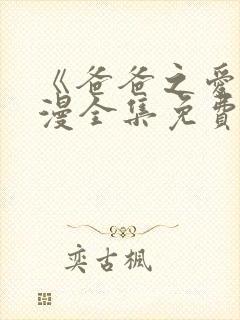 《爸爸之愛
漫全集免費
奕古楓